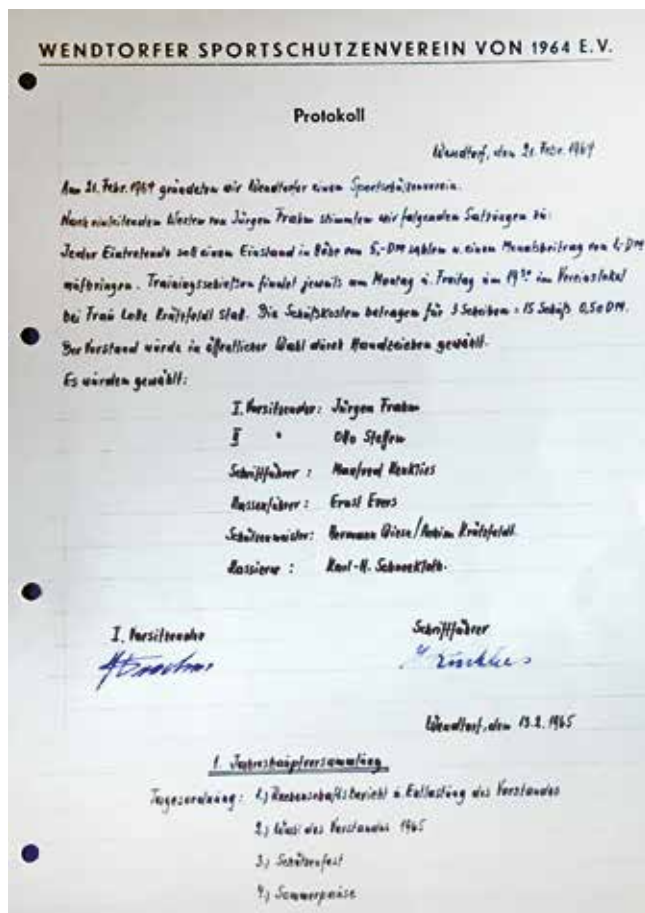 WENDTORFER SPORTSCHUTZENVEREIN VON 1964 E.V.
Protokoll
Wendtorf, den 21. Febr. 1964
Am 21. Febr. 1964 gründeten wir Wendtorfer einen Sportschützenverein.
Nach einleitenden Worten von Jürgen Frahm stimmten wir folgenden Satzungen zu:
Jeder Eintretende soll einen Einstand in Höhe von 5,-DM zahlen u. einen Monatsbeitrag von 2,-DM
aufbringen. Trainingsschießen findet jeweils am Montag u. Freitag um 19³⁰ im Vereinslokal
bei Frau Lotte Krützfeldt statt. Die Schußkosten betragen für 3 Scheiben = 15 Schuß 0,50 DM.
Der Vorstand wurde in öffentlicher Wahl durch Handzeichen gewählt.
Es wurden gewählt:
I. Vorsitzender: Jürgen Frahm
II " Otto Steffen
Schriftführer: Manfred
Kassenführer: Ernst Evers
Schützenmeister: Hermann Wiese/Achim Krützfeldt
Kassierer: Karl-H. Schneekloth.
I. Vorsitzender Schriftführer
Wendtorf, den 13.2.1965
1. Jahreshauptversammlung
Tagesordnung: 1.) Rechenschaftsbericht u. Entlastung des Vorstandes
2.) Wahl des Vorstandes 1965
3.) Schützenfest
4.) Sommerpause